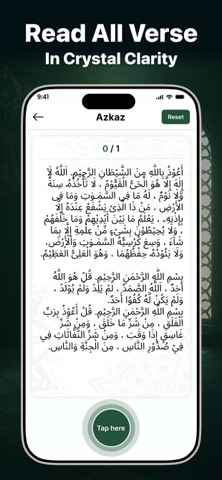 Read All Verse
In Crystal Clarity
9:41
Azkaz
Reset
0 / 1
أَعُوذُ بِاللَّهِ مِنَ الشَّيْطَانِ الرَّجِيمِ. اللَّهُ لَا
إِلَهَ إِلَّا هُوَ الْحَيُّ الْقَيُّومُ ، لَا تَأْخُذُهُ سِنَةٌ
وَلَا نَوْمٌ ، لَهُ مَا فِي السَّمَـوَتِ وَمَا فِي
الْأَرْضِ ، مَنْ ذَا الَّذِيْ يَشْفَعُ عِنْدَهُ إِلَّا
بِإِذْنِهِ، ، يَعْلَمُ مَا بَيْنَ أَيْدِيهِمْ وَمَا خَلْفَهُمْ
، وَلَا يُحِيْطُوْنَ بِشَيْءٍ مِّنْ عِلْمِهِ إِلَّا بِمَا
شَآءَ ، وَسِعَ كُرْسِيُّهُ السَّمَـوَتِ وَالْأَرْضَ،
، وَلَا يَئُوْدُهُ حِفْظُهُمَا ، وَهُوَ الْعَلِيُّ الْعَظِيْمُ.
بِسْمِ اللَّهِ الرَّحْمَنِ الرَّحِيْمِ. قُلْ هُوَ اللَّهُ
أَحَدٌ ، اَللَّهُ الصَّمَدُ ، لَمْ يَلِدْ وَلَمْ يُوْلَدْ ،
وَلَمْ يَكُنْ لَّهُ كُفُوًا أَحَدٌ.
بِسْمِ اللَّهِ الرَّحْمَنِ الرَّحِيْمِ. قُلْ أَعُوْذُ بِرَبِّ
الْفَلَقِ ، مِنْ شَرِّ مَا خَلَقَ ، وَمِنْ شَرِّ
غَاسِقٍ إِذَا وَقَبَ ، وَمِنْ شَرِّ النَّفَّاثَاتِ فِي
فِيْ صُدُوْرِ النَّاسِ ، مِنَ الْجِنَّةِ وَالنَّاسِ.
Tap here